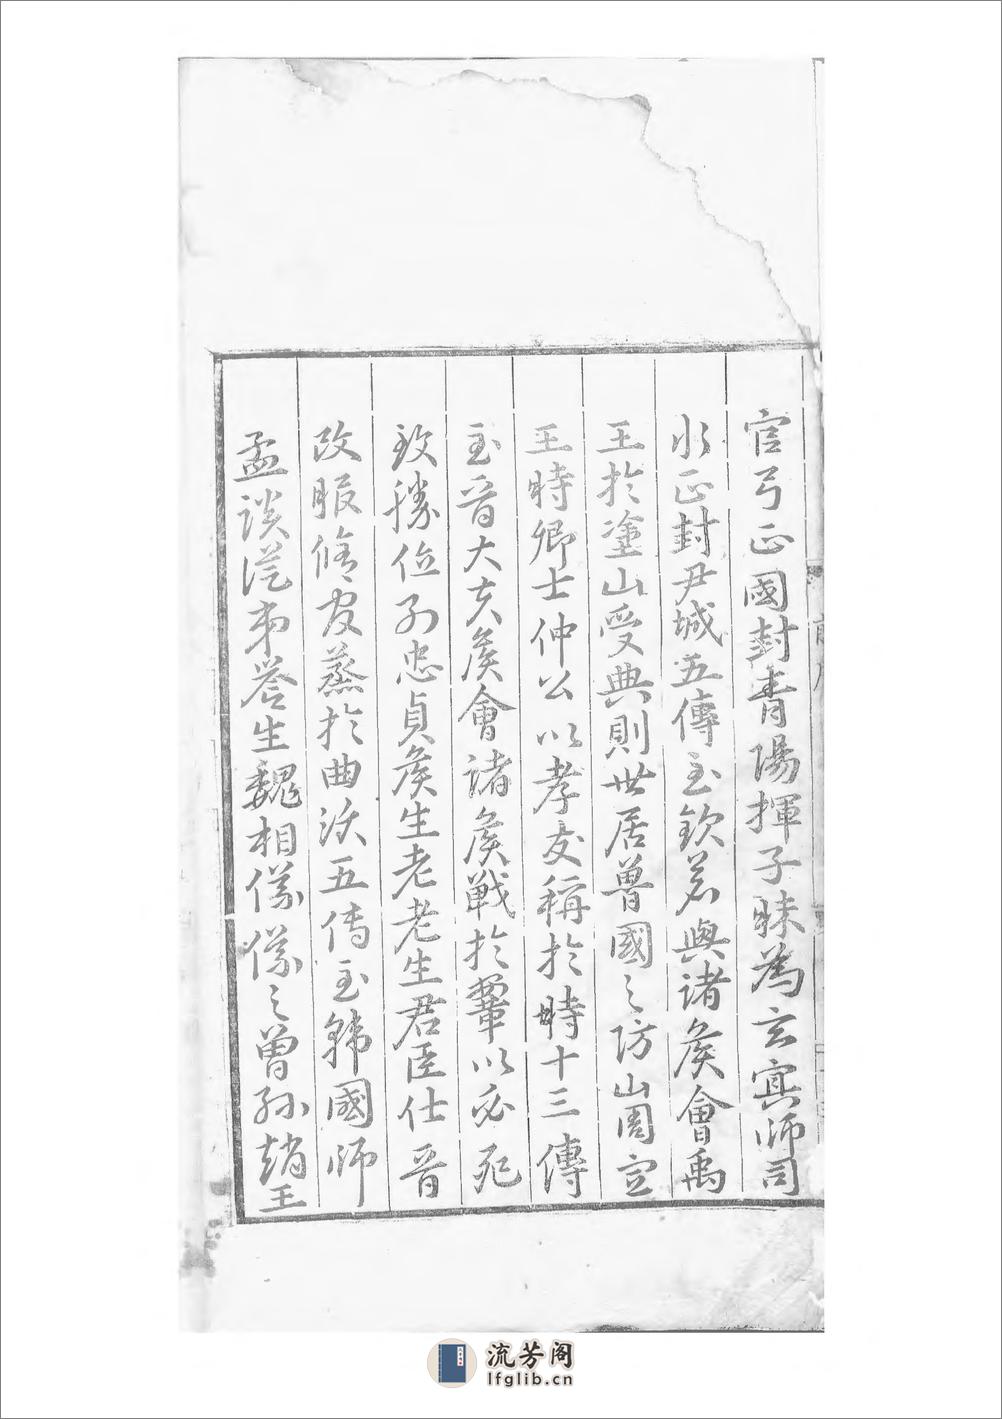 官弓正國封青陽揮子昧為玄冥師司
水正封尹城五傳至欽若與諸侯會禹
王於塗山受典則世居魯國之防山周宣
王時卿士仲公以孝友稱於時十三傳
至晉大夫侯會諸侯戰於鞏以必死
致勝位列忠貞侯生老老生君臣仕晉
改服脩官蒸於曲沃五传至韩國師
孟談從弟譽生魏相儀儀之曾孫趙王
流芳阁
lfglib.cn